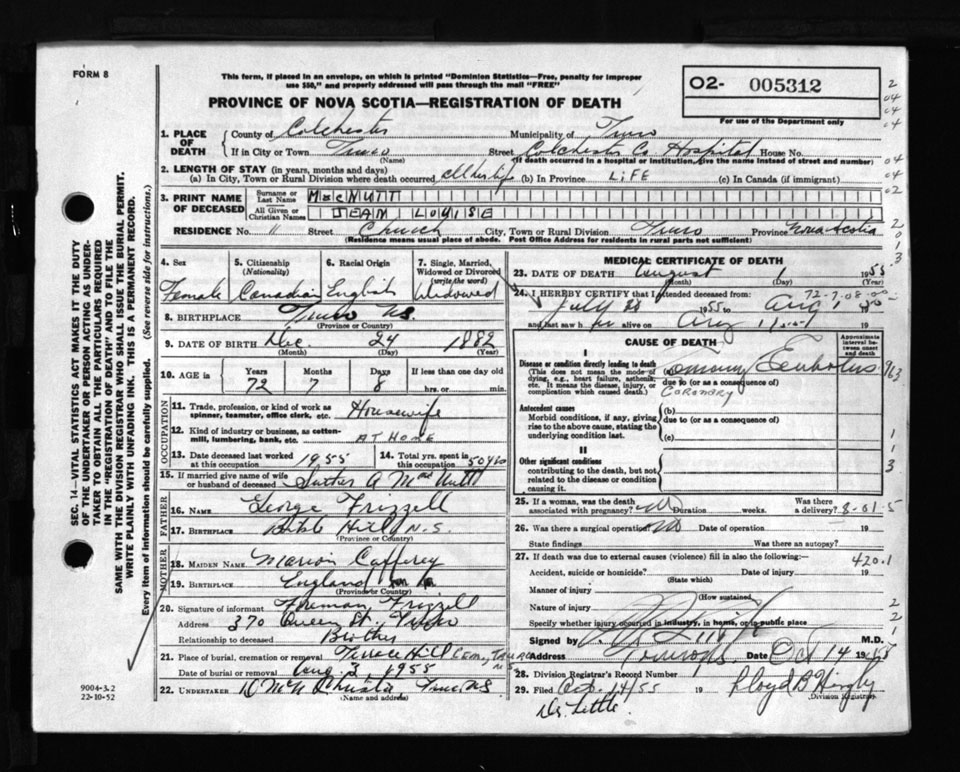 FORM 8
This form, if placed in an envelope, on which is printed "Dominion Statistics—Free, penalty for improper
use $50," and properly addressed will pass through the mail "FREE"
O2- 005312
For use of the Department only
PROVINCE OF NOVA SCOTIA—REGISTRATION OF DEATH
1. PLACE OF DEATH
County of Colchester Municipality of Truro
If in City or Town Truro Street Colchester Co. Hospital House No.
(Name) (If death occurred in a hospital or institution, give the name instead of street and number)
2. LENGTH OF STAY (in years, months and days)
(a) In City, Town or Rural Division where death occurred all her life (b) In Province LIFE (c) In Canada (if immigrant)
3. PRINT NAME OF DECEASED
Surname or Last Name MacNUTT
All Given or Christian Names JEAN LOUISE
RESIDENCE No. 11 Street Church City, Town or Rural Division Truro Province Nova Scotia
(Residence means usual place of abode. Post Office Address for residents in rural parts not sufficient)
4. Sex
Female
5. Citizenship (Nationality)
Canadian
6. Racial Origin
English
7. Single, Married, Widowed or Divorced (write the word)
Widowed
8. BIRTHPLACE Truro N.S.
(Province or Country)
9. DATE OF BIRTH Dec. 24 1882
(Month) (Day) (Year)
10. AGE in Years Months Days If less than one day old
72 7 8 hrs. or min.
OCCUPATION
11. Trade, profession, or kind of work as spinner, teamster, office clerk, etc. Housewife
12. Kind of industry or business, as cotton-mill, lumbering, bank, etc. AT HOME
13. Date deceased last worked at this occupation 1955
14. Total yrs. spent in this occupation 50 yrs
15. If married give name of wife or husband of deceased A MacNutt
FATHER
16. Name George Frizzell
17. Birthplace Bible Hill N.S.
(Province or Country)
MOTHER
18. MAIDEN NAME Marion Cafferey
19. BIRTHPLACE England
(Province or Country)
20. Signature of informant Freeman Frizzell
Address 370 Queen St. Truro
Relationship to deceased Brother
21. Place of burial, cremation or removal Terrace Hill Cem., TRURO N S
Date of burial or removal Aug 3, 1955
22. UNDERTAKER Truro N S
(Name and address)
MEDICAL CERTIFICATE OF DEATH
23. DATE OF DEATH August 1 1955
(Month) (Day) (Year)
24. I HEREBY CERTIFY that I attended deceased from:
July 1955 to Aug 1
and last saw her alive on Aug 1 19
CAUSE OF DEATH
Approximate interval between onset and death
I
Disease or condition directly leading to death
(This does not mean the mode of dying, e.g., heart failure, asthenia, etc. It means the disease, injury, or complication which caused death.)
(a) Embolus
due to (or as a consequence of)
CORONARY
Antecedent causes
Morbid conditions, if any, giving rise to the above cause, stating the underlying condition last.
(b)
due to (or as a consequence of)
(c)
II
Other significant conditions
contributing to the death, but not related to the disease or condition causing it.
25. If a woman, was the death associated with pregnancy? No Duration weeks. Was there a delivery?
26. Was there a surgical operation? No Date of operation 19
State findings Was there an autopsy?
27. If death was due to external causes (violence) fill in also the following:— 420.1
Accident, suicide or homicide? Date of injury 19
(State which)
Manner of injury
(How sustained)
Nature of injury
Specify whether injury occurred in industry, in home, or in public place
Signed by M.D.
Address Date Oct 14 1955
28. Division Registrar's Record Number
29. Filed Oct. 14/55 19
Division Registrar
Dr. Little.
SEC. 14—VITAL STATISTICS ACT MAKES IT THE DUTY
OF THE UNDERTAKER OR PERSON ACTING AS UNDER-
TAKER TO OBTAIN ALL THE PARTICULARS REQUIRED
IN THE "REGISTRATION OF DEATH" AND TO FILE THE
SAME WITH THE DIVISION REGISTRAR WHO SHALL ISSUE THE BURIAL PERMIT.
WRITE PLAINLY WITH UNFADING INK. THIS IS A PERMANENT RECORD.
Every item of information should be carefully supplied. (See reverse side for instructions.)
9004-3.2
22-10-52